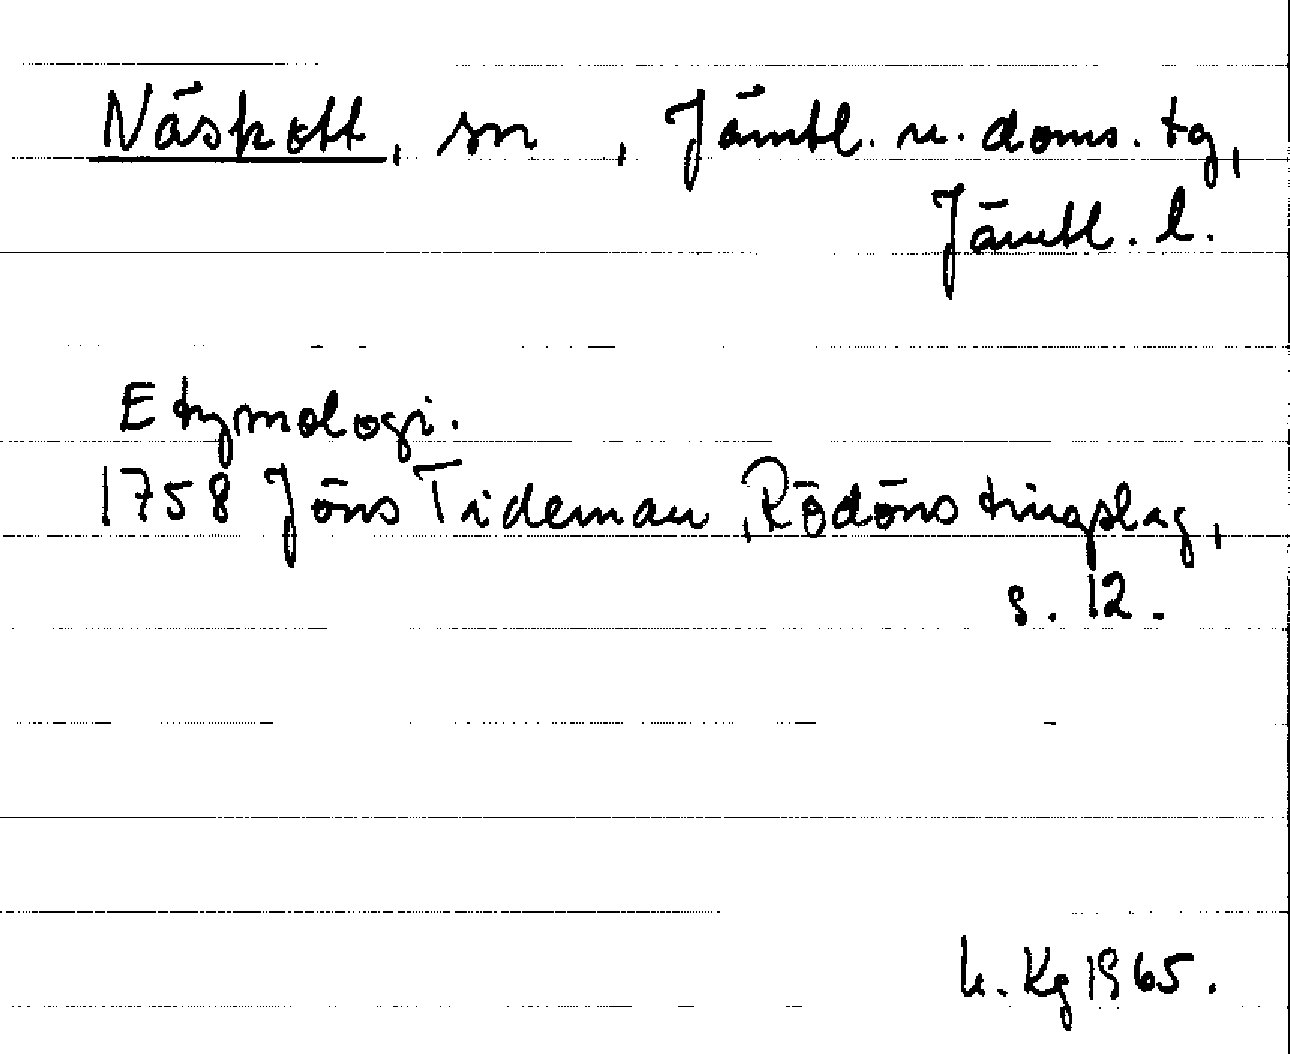 Näskott, sn, Jämtl. n. doms. tg,
Jämtl. l.
Etymologi.
1758 Jöns Tideman, Rödöns tingslag,
s. 12.
h. Kg 1965.